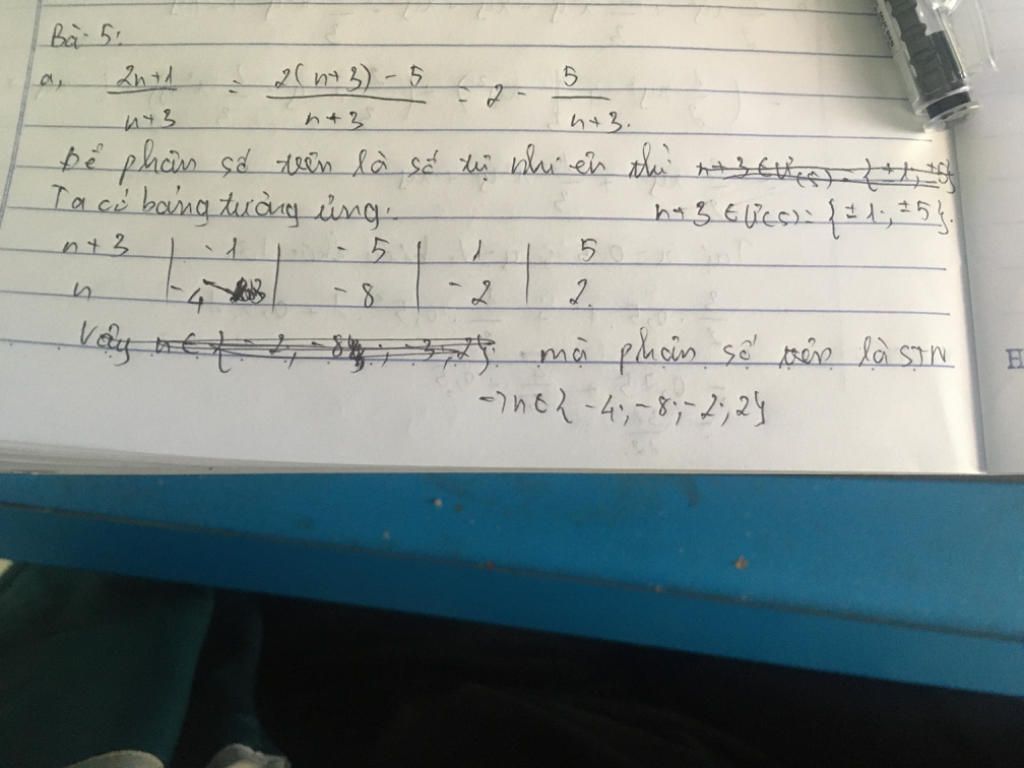 Bài 5:
a, 2n+1/n+3 = 2(n+3) - 5/n+3 = 2 - 5/n+3.
Để phân số trên là số tự nhiên thì n+3 ∈ Ư(5) = {±1; ±5}
Ta có bảng tương ứng: n+3 ∈ Ư(5) = {±1; ±5}.
n+3 | -1 | -5 | 1 | 5
n | -4 | -8 | -2 | 2
Vậy n ∈ { -2; -8; -3; 2}. mà phân số trên là STN
→ n ∈ { -4; -8; -2; 2}
H